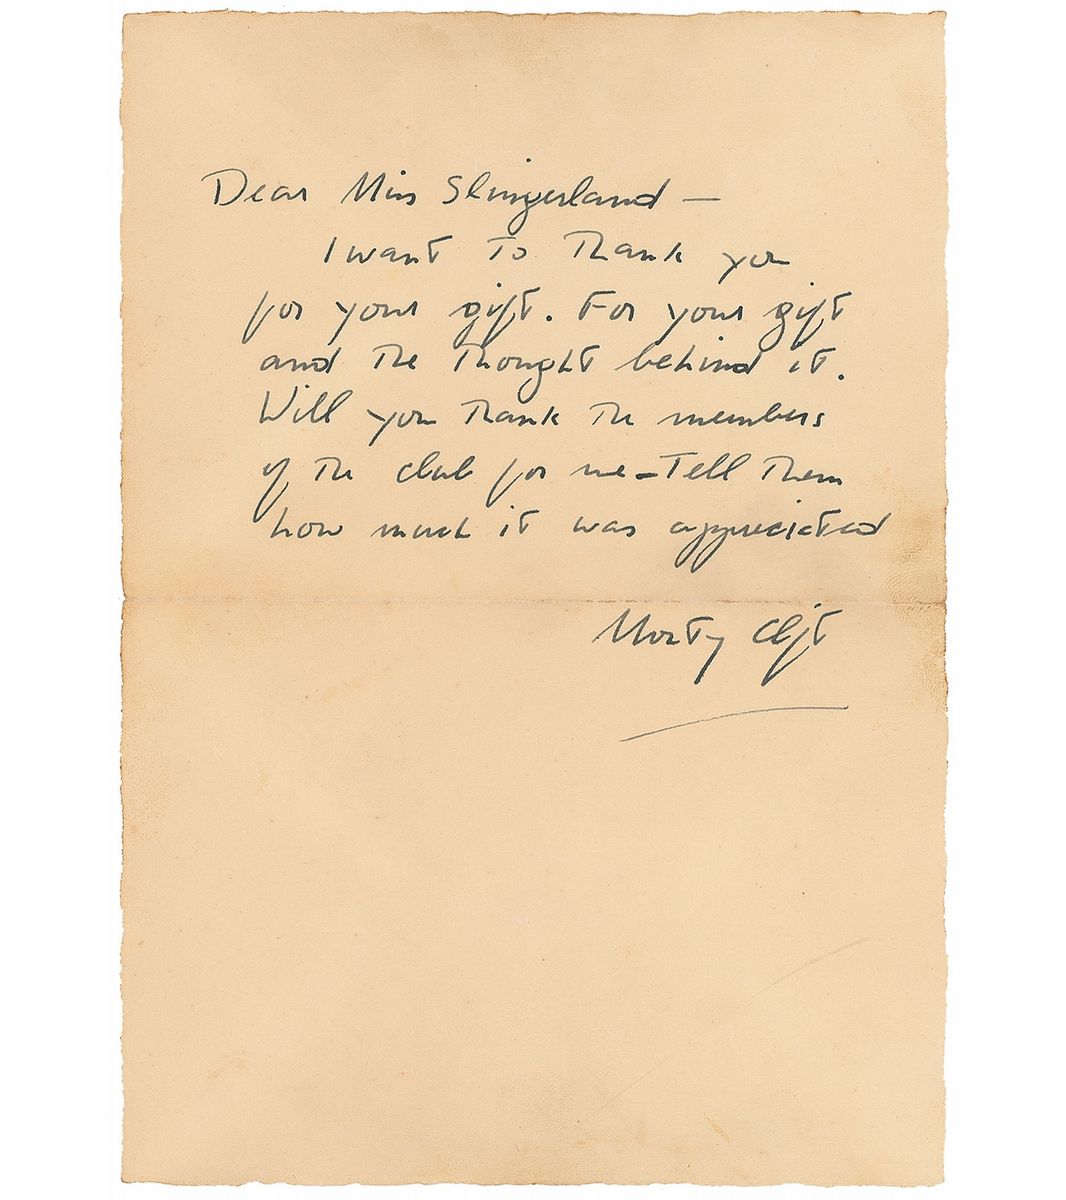 Dear Miss Slingerland —
I want to thank you
for your gift. For your gift
and the thought behind it.
Will you thank the members
of the club for me – Tell them
how much it was appreciated
Monty Clift